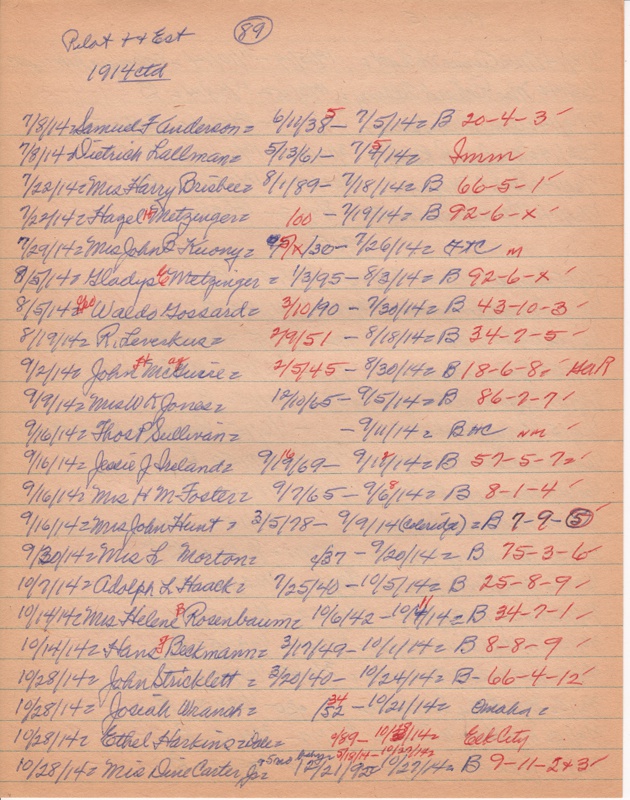 Pilot ++ Est (89)
1914 ctd
7/8/14= Samuel F Anderson= 6/11/38 5 - 7/5/14= B 20-4-3
7/8/14= Dietrich Lallman= 5/13/61- 7/5/14= Imm
7/22/14= Mrs Harry Brisbee= 8/1/89- 7/18/14= B 66-5-1
7/22/14= Hazel H Metzinger= 100 - 7/19/14= B 92-6-x
7/29/14= Mrs John B Kuony= /30- 7/26/14= M
8/5/14= Gladys Metzinger= 1/3/95- 8/3/14= B 92-6-x
8/5/14= Geo Waldo Gossard= 3/10/90 - 7/30/14= B 43-10-3
8/19/14= R. Leverkus= 2/9/51 - 8/18/14= B 34-7-5
9/2/14= John McGuire= 2/5/45 - 8/30/14= B 18-6-8
9/9/14= Mrs W D Jones= 12/10/65- 9/5/14= B 86-7-7
9/16/14= Thos P Sullivan= - 9/11/14= B HC NM
9/16/14= Jessie J Ireland= /69- /14= B 57-5-7
9/16/14= Mrs H M Foster= 9/7/65 - 9/6/14= B 8-1-4
9/16/14= Mrs John Hunt= 3/5/78- 9/9/14 (Coleridge)= B 7-9-5
9/30/14= Mrs L Morton= /37 - 9/20/14= B 75-3-6
10/7/14= Adolph L Haack= 7/25/40- 10/5/14= B 25-8-9
10/14/14= Mrs Helene B Rosenbaum= 10/6/42 - 10/11/14= B 34-7-1
10/14/14= Hans J Beckmann= 3/17/49- 10/11/14= B 8-8-9
10/28/14= John Stricklett= 3/20/40- 10/24/14= B- 66-4-12
10/28/14= Josiah Wranch= /52 34 - 10/21/14= Omaha=
10/28/14= Ethel Harkins= /89- /14= Elk City
5 mo 5/18/14- 10/27/14=
10/28/14= Mrs Dine Carter, Jr= 12/21/95 10/27/14= B 9-11-2+3